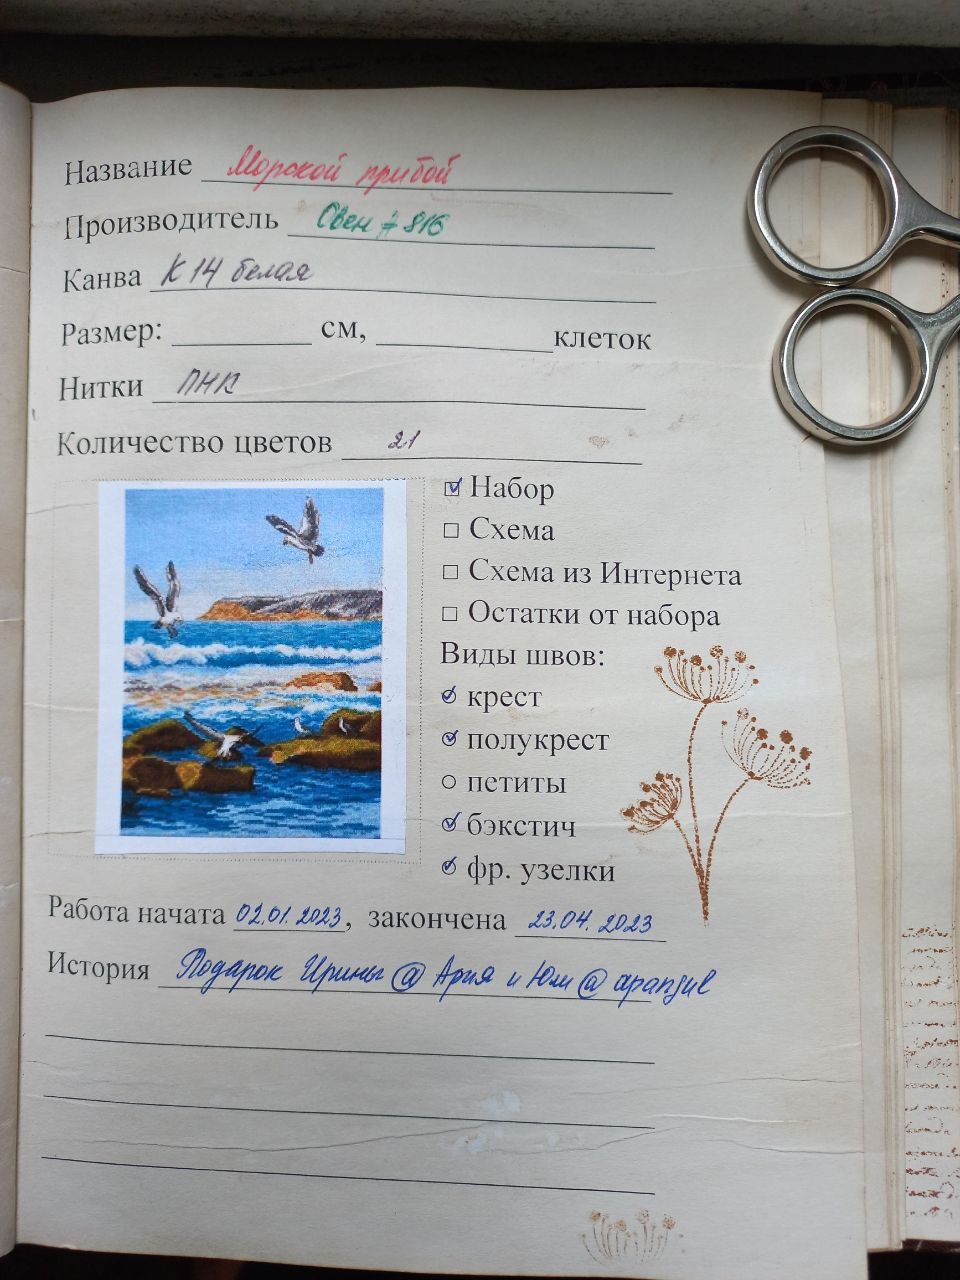 Название Морской прибой
Производитель Овен # 816
Канва К 14 белая
Размер: см, клеток
Нитки ПНК
Количество цветов 21
Набор
Схема
Схема из Интернета
Остатки от набора
Виды швов:
крест
полукрест
петиты
бэкстич
фр. узелки
Работа начата 02.01.2023, закончена 23.04.2023
История Подарок Ирины @ Ария и Юли @